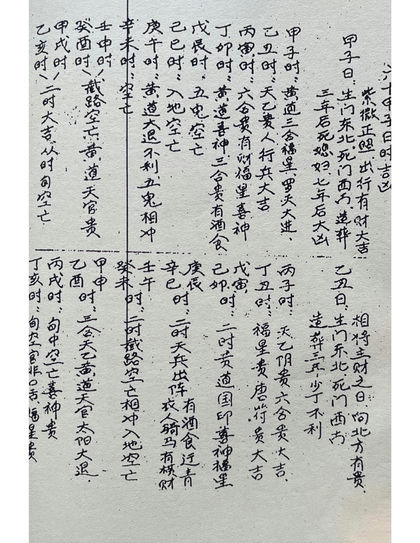 六十甲子日时吉凶
紫微正照出行有财大吉
甲子日:生门东北,死门西南,造葬
三年后死媳妇七年后大凶
甲子时:黄道三合福星,罗天大进、
乙丑时:天乙贵人行兵大吉
丙寅时:六合贵有财福星喜神
丁卯时:黄道喜神三合贵有酒食
戊辰时:五鬼空亡
己巳时:入地空亡
庚午时:黄道大退不利五鬼相冲
辛未时:空亡
壬申时
癸酉时 截路空亡黄道天官贵
甲戌时
乙亥时 二时大吉从时旬空亡
相将主财之日向北方有贵、
乙丑日:生门东北,死门西南
造葬三年少丁不利
丙子时:天乙阴贵六合贵大吉、
丁丑时:福星贵唐符贵大吉
戊寅时
己卯时 二时贵道国印喜神福星
庚辰 有酒食迁青
辛巳时:二时天兵出阵衣骑马有横财
壬午
癸未时:二时截路空亡相冲入地空亡
甲申
乙酉时:三合天乙黄道天官太阳大退、
丙戌时:旬中空亡喜神贵
丁亥时:旬空官非口舌,福星贵